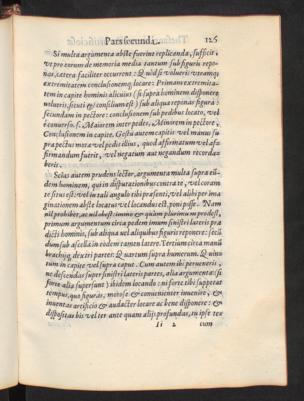 Pars secunda. 125
Si multa argumenta abs te fuerint replicanda, sufficit,
ut pro eorum de memoria media tantum sub figuris repo-
nas, cætera faciliter occurrent: Quòd si volueris utramq;
extremitatem conclusionemq́; locare: Primam extremita-
tem in capite hominis alicuius (si supra hominem disponere
volueris, sicuti & consilium est) sub aliqua reponas figura:
secundam in pectore: conclusionem sub pedibus locato, vel
è conuerso, s. Maiorem inter pedes, Minorem in pectore,
Conclusionem in capite. Gestu autem capitis vel manus su
pra pectus mota vel pedis illius, quod affirmatum vel af-
firmandum fuerit, vel negatum aut negandum recorda-
beris.
Scias autem prudens lector, argumenta multa supra eũ-
dem hominem, qui in disputationibus contra te, vel coram
te situs est, vel in tali angulo tibi præsenti, vel alibi per ima
ginationem abs te locatus vel locandus est, poni posse. Nam
nil prohibet, ac nil obest: immo & quàm plurimum prodest,
primum argumentum circa pedem imum sinistri lateris præ
dicti hominis, sub aliqua vel aliquibus figuris reponere: secũ
dum sub ascella in eodem tamen latere. Tertium circa manũ
brachijq́; dextri partes: Quartum supra humerum. Quin-
tum in capite vel supra caput. Cum autem ibi perueneris,
ne descendas super sinistri lateris partes, alia argumenta (si
forte alia supersunt) ibidem locando: ni forte tibi suppetat
tempus, quo figuras, morosè & conuenienter inuenire, &
inuentas artificio & audacter locare ac bene disponere: &
dispositas bis vel ter ante quam alijs profundas, tu ipse tex
Ii 2 cum